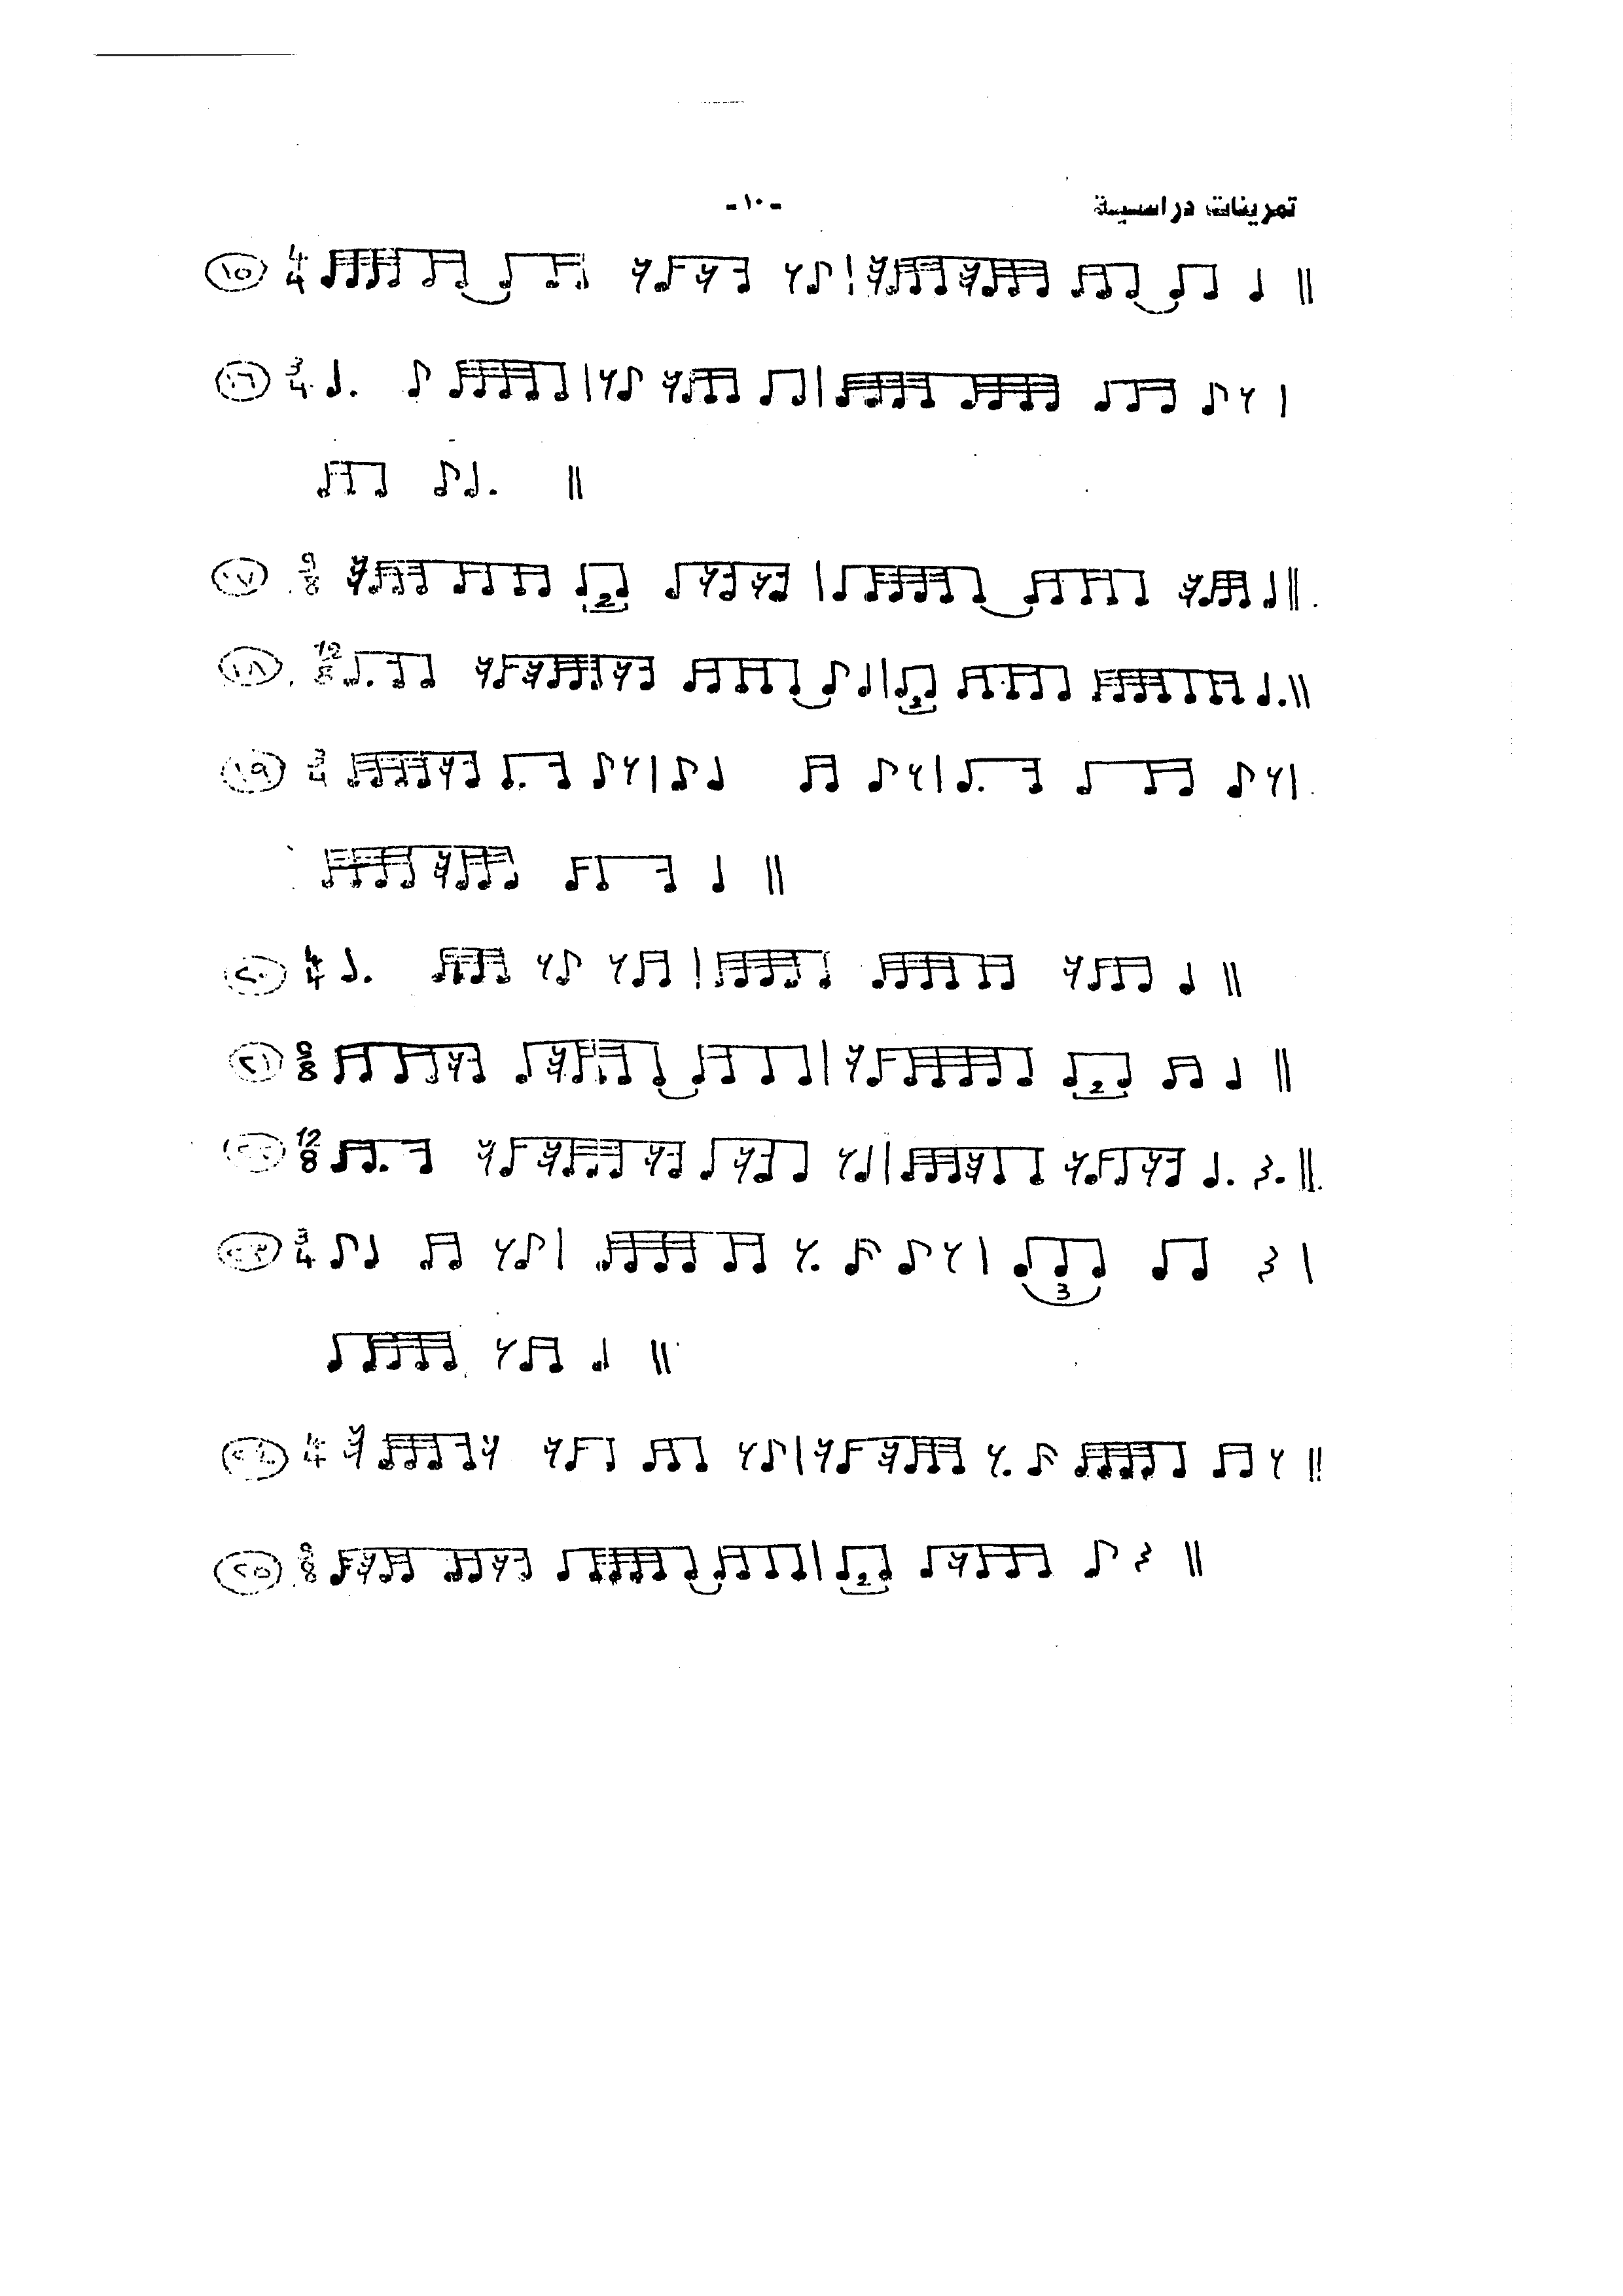 تمرينات دراسية
-١٠-
١٥ 4/4
١٦ 3/4
١٧ 9/8 2
١٨ 12/8 2
١٩ 3/4
٢٠ 4/4
٢١ 9/8 2
٢٢ 12/8
٢٣ 3/4 3
٢٤ 4/4
٢٥ 9/8 2